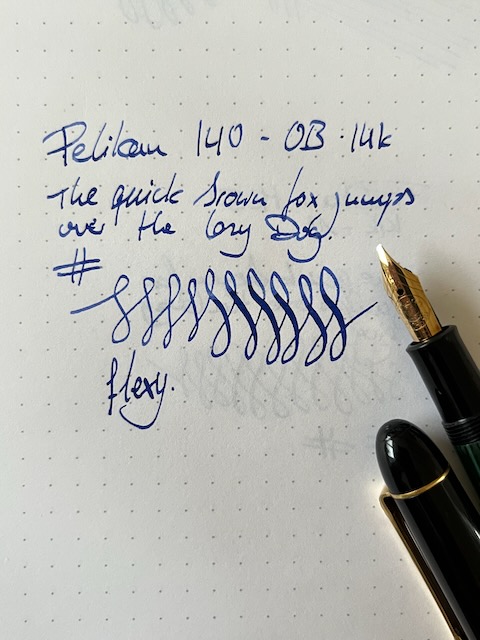 Pelikan 140 - OB · 14k
The quick brown fox jumps
over the lazy Dog.
#
flexy.